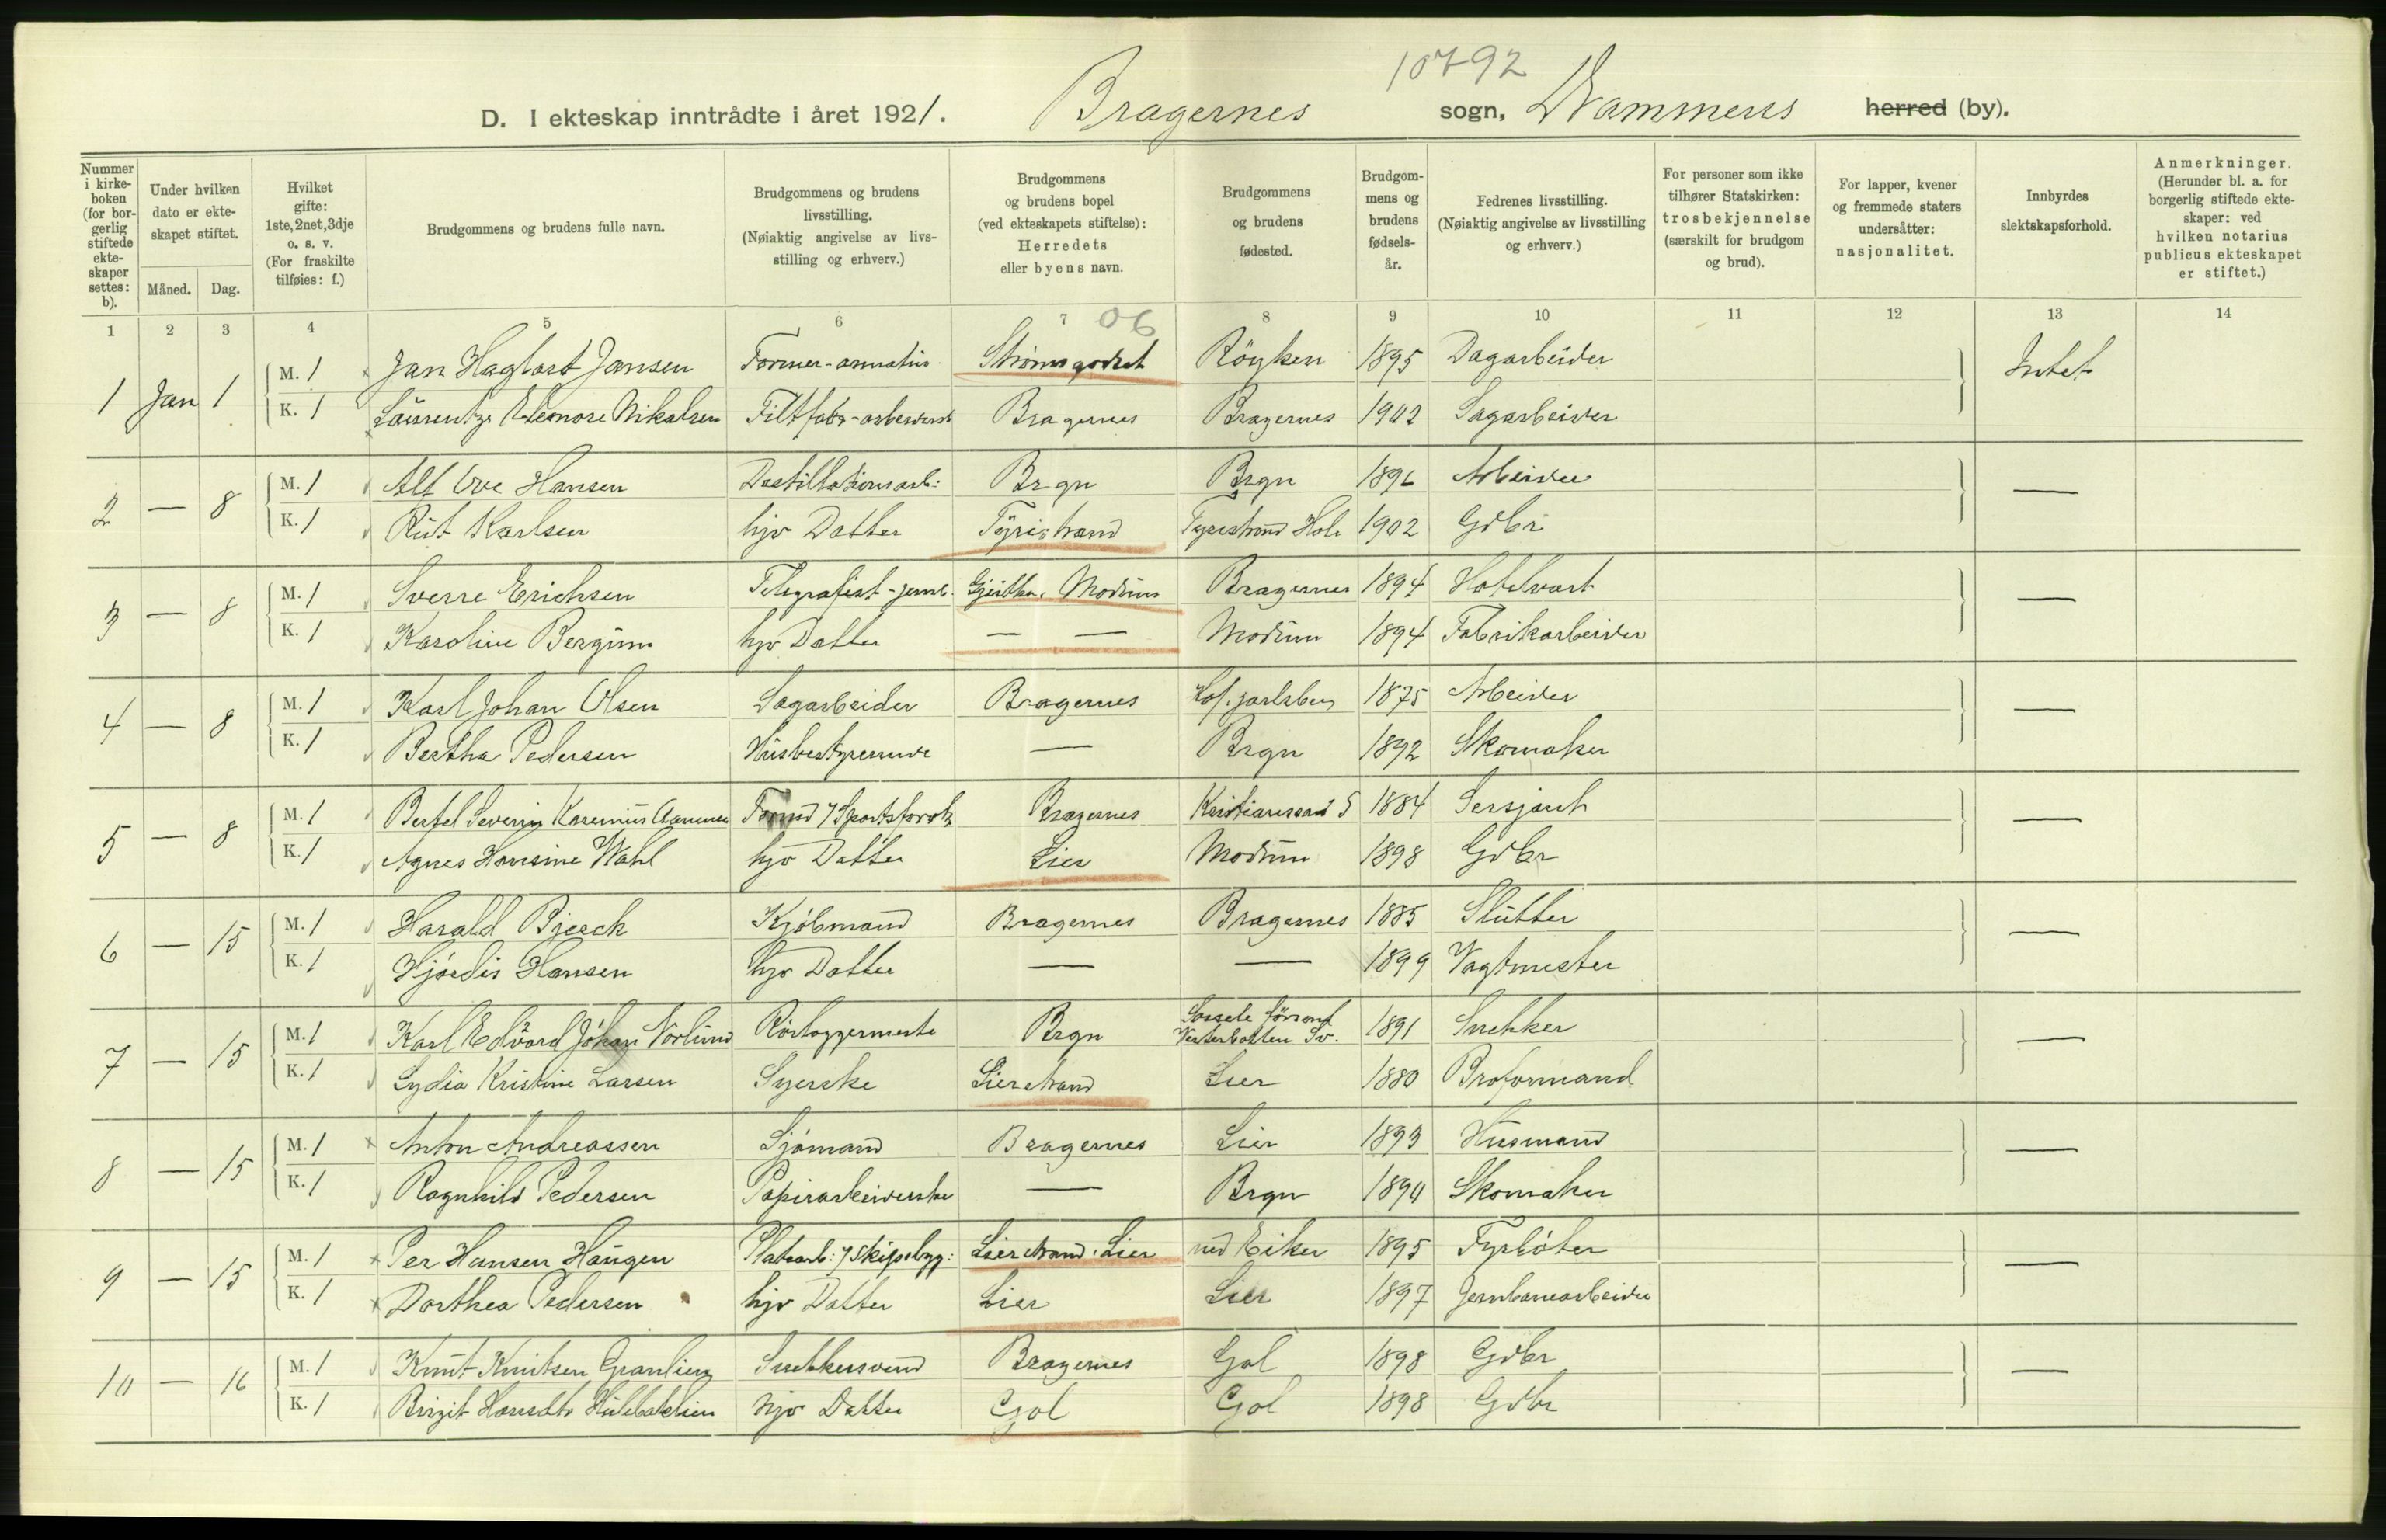 10792
D. I ekteskap inntrådte i året 1921. Bragernes sogn, Drammens herred (by).
Nummer i kirkeboken (for borgerlig stiftede ekteskaper settes: b).
Under hvilken dato er ekteskapet stiftet.
Måned. Dag.
Hvilket gifte: 1ste, 2net, 3dje o. s. v. (For fraskilte tilføies: f.)
Brudgommens og brudens fulle navn.
Brudgommens og brudens livsstilling. (Nøiaktig angivelse av livsstilling og erhverv.)
Brudgommens og brudens bopel (ved ekteskapets stiftelse): Herredets eller byens navn.
Brudgommens og brudens fødested.
Brudgommens og brudens fødselsår.
Fedrenes livsstilling. (Nøiaktig angivelse av livsstilling og erhverv.)
For personer som ikke tilhører Statskirken: trosbekjennelse (særskilt for brudgom og brud).
For lapper, kvener og fremmede staters undersåtter: nasjonalitet.
Innbyrdes slektskapsforhold.
Anmerkninger. (Herunder bl. a. for borgerlig stiftede ekteskaper: ved hvilken notarius publicus ekteskapet er stiftet.)
1 2 3 4 5 6 7 06 8 9 10 11 12 13 14
1 Jan 1 M. 1 Jan Haglart Jansen Former-armatur Strømsgodset Röyken 1895 Dagarbeider Intet
K. 1 Laurentze Eleonore Nikolsen Filtfabr-arbeiderske Bragernes Bragernes 1902 Sagarbeider
2 — 8 M. 1 Alf Ove Hansen Destillationsarb: Brgn Brgn 1896 Arbeider —
K. 1 Rut Karlsen hjv Datter Tyristrand Tyristrand Hole 1902 Gdbr
3 — 8 M. 1 Sverre Erichsen Telegrafist-jernb. Geithus, Modum Bragernes 1894 Hotelvert —
K. 1 Karoline Bergum hjv Datter — — Modum 1894 Fabrikarbeider
4 — 8 M. 1 Karl Johan Olsen Sagarbeider Bragernes Hof. jarlsberg 1875 Arbeider —
K. 1 Bertha Pedersen Husbestyrerinde — Brgn 1892 Skomaker
5 — 8 M. 1 Bertel Severin Bragernes Kristianssand S 1884 Sersjant —
K. 1 Agnes Hansine Wahl hjv Datter Lier Modum 1898 Gdbr
6 — 15 M. 1 Harald Bjerck Kjöbmand Bragernes Bragernes 1885 Slutter —
K. 1 Hjördis Hansen hjv Datter — — 1899 Vagtmester
7 — 15 M. 1 Karl Edvard Johan Norlund Rörlæggermester Brgn Sorsele Vesterbotten Sv. 1891 Snekker —
K. 1 Lydia Kristine Larsen Syerske Lierstrand Lier 1880 Broformand
8 — 15 M. 1 Anton Andreassen Sjömand Bragernes Lier 1893 Husmand —
K. 1 Ragnhild Pedersen Papirarbeiderske — Brgn 1890 Skomaker
9 — 15 M. 1 Per Hansen Haugen Platearb: 7 Skipsbygg: Lierstrand. Lier ned Eiker 1895 Fyrböter —
K. 1 Dorthea Pedersen hjv Datter Lier Lier 1897 Jernbanearbeider
10 — 16 M. 1 Knut Knutsen Granlien Snekkersvend Bragernes Gol 1898 Gdbr —
K. 1 Birgit hjv Datter Gol Gol 1898 Gdbr